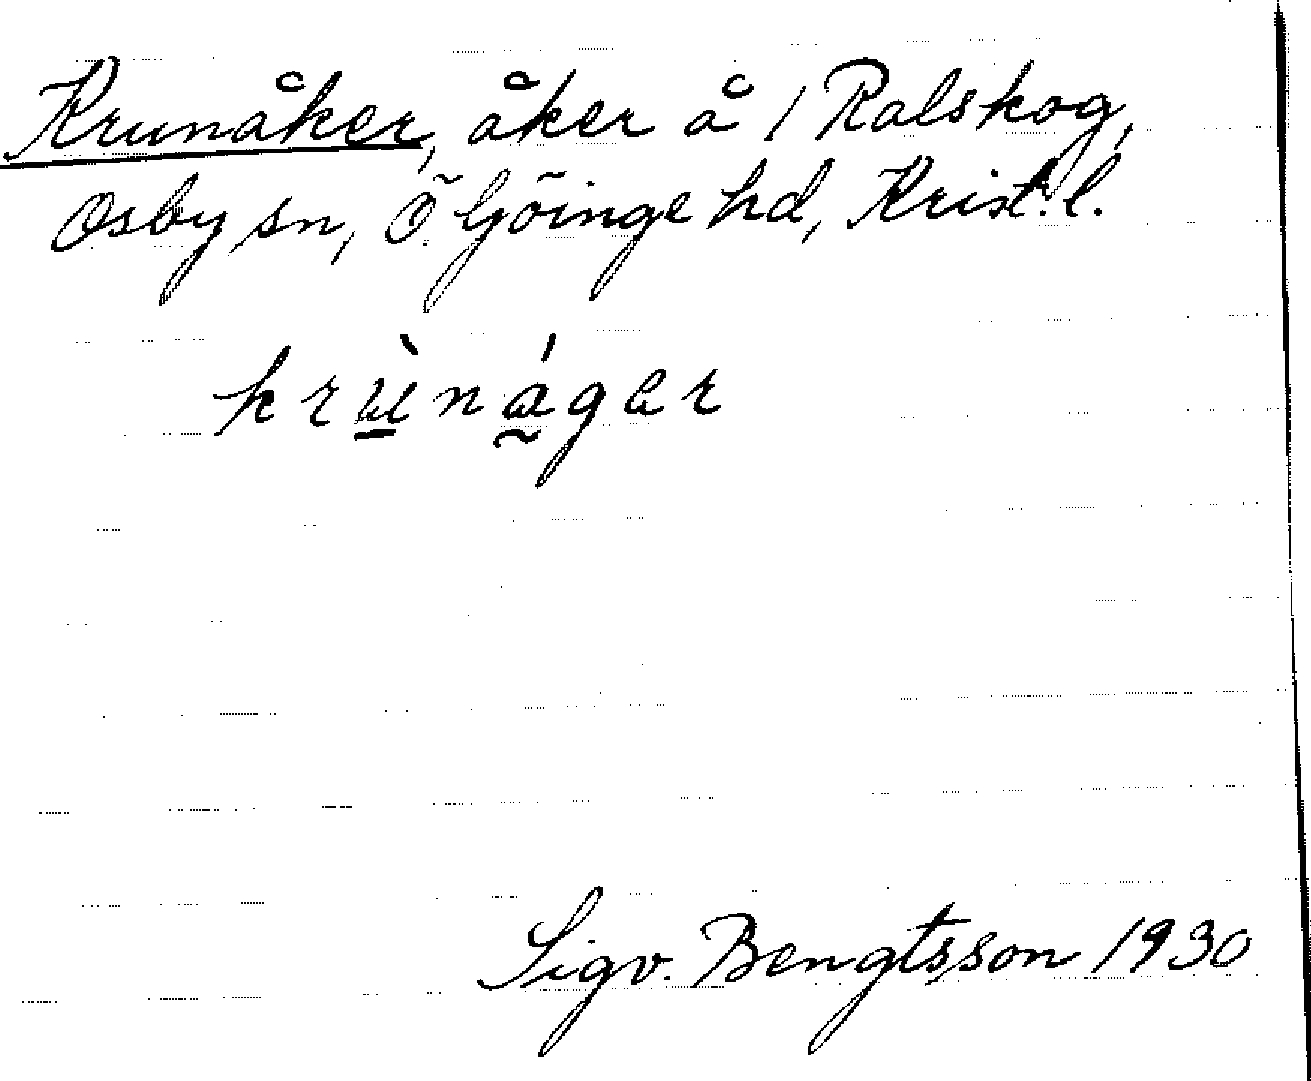 Krunåker, åker å 1 Ralskog,
Osby sn, Ö. Göinge hd, Krist. l.
krùnágær
Sigv. Bengtsson 1930